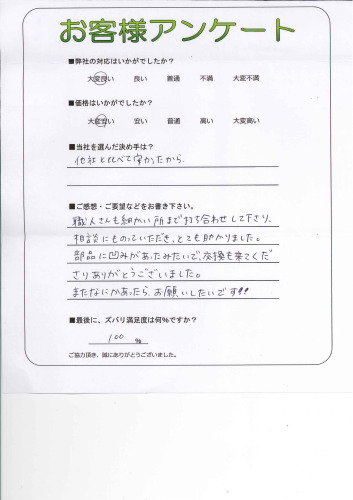 お客様アンケート
■弊社の対応はいかがでしたか?
大変良い 良い 普通 不満 大変不満
■価格はいかがでしたか?
大変安い 安い 普通 高い 大変高い
■当社を選んだ決め手は?
他社と比べて安かったから.
■ご感想・ご要望などをお書き下さい。
職人さんも細かい所まで打ち合わせして下さり、
相談にものっていただき、とても助かりました。
部品に凹みがあったみたいで、交換も来てくだ
さりありがとうございました。
またなにかあったら、お願いしたいです!!
■最後に、ズバリ満足度は何%ですか?
100 %
ご協力頂き、誠にありがとうございました。